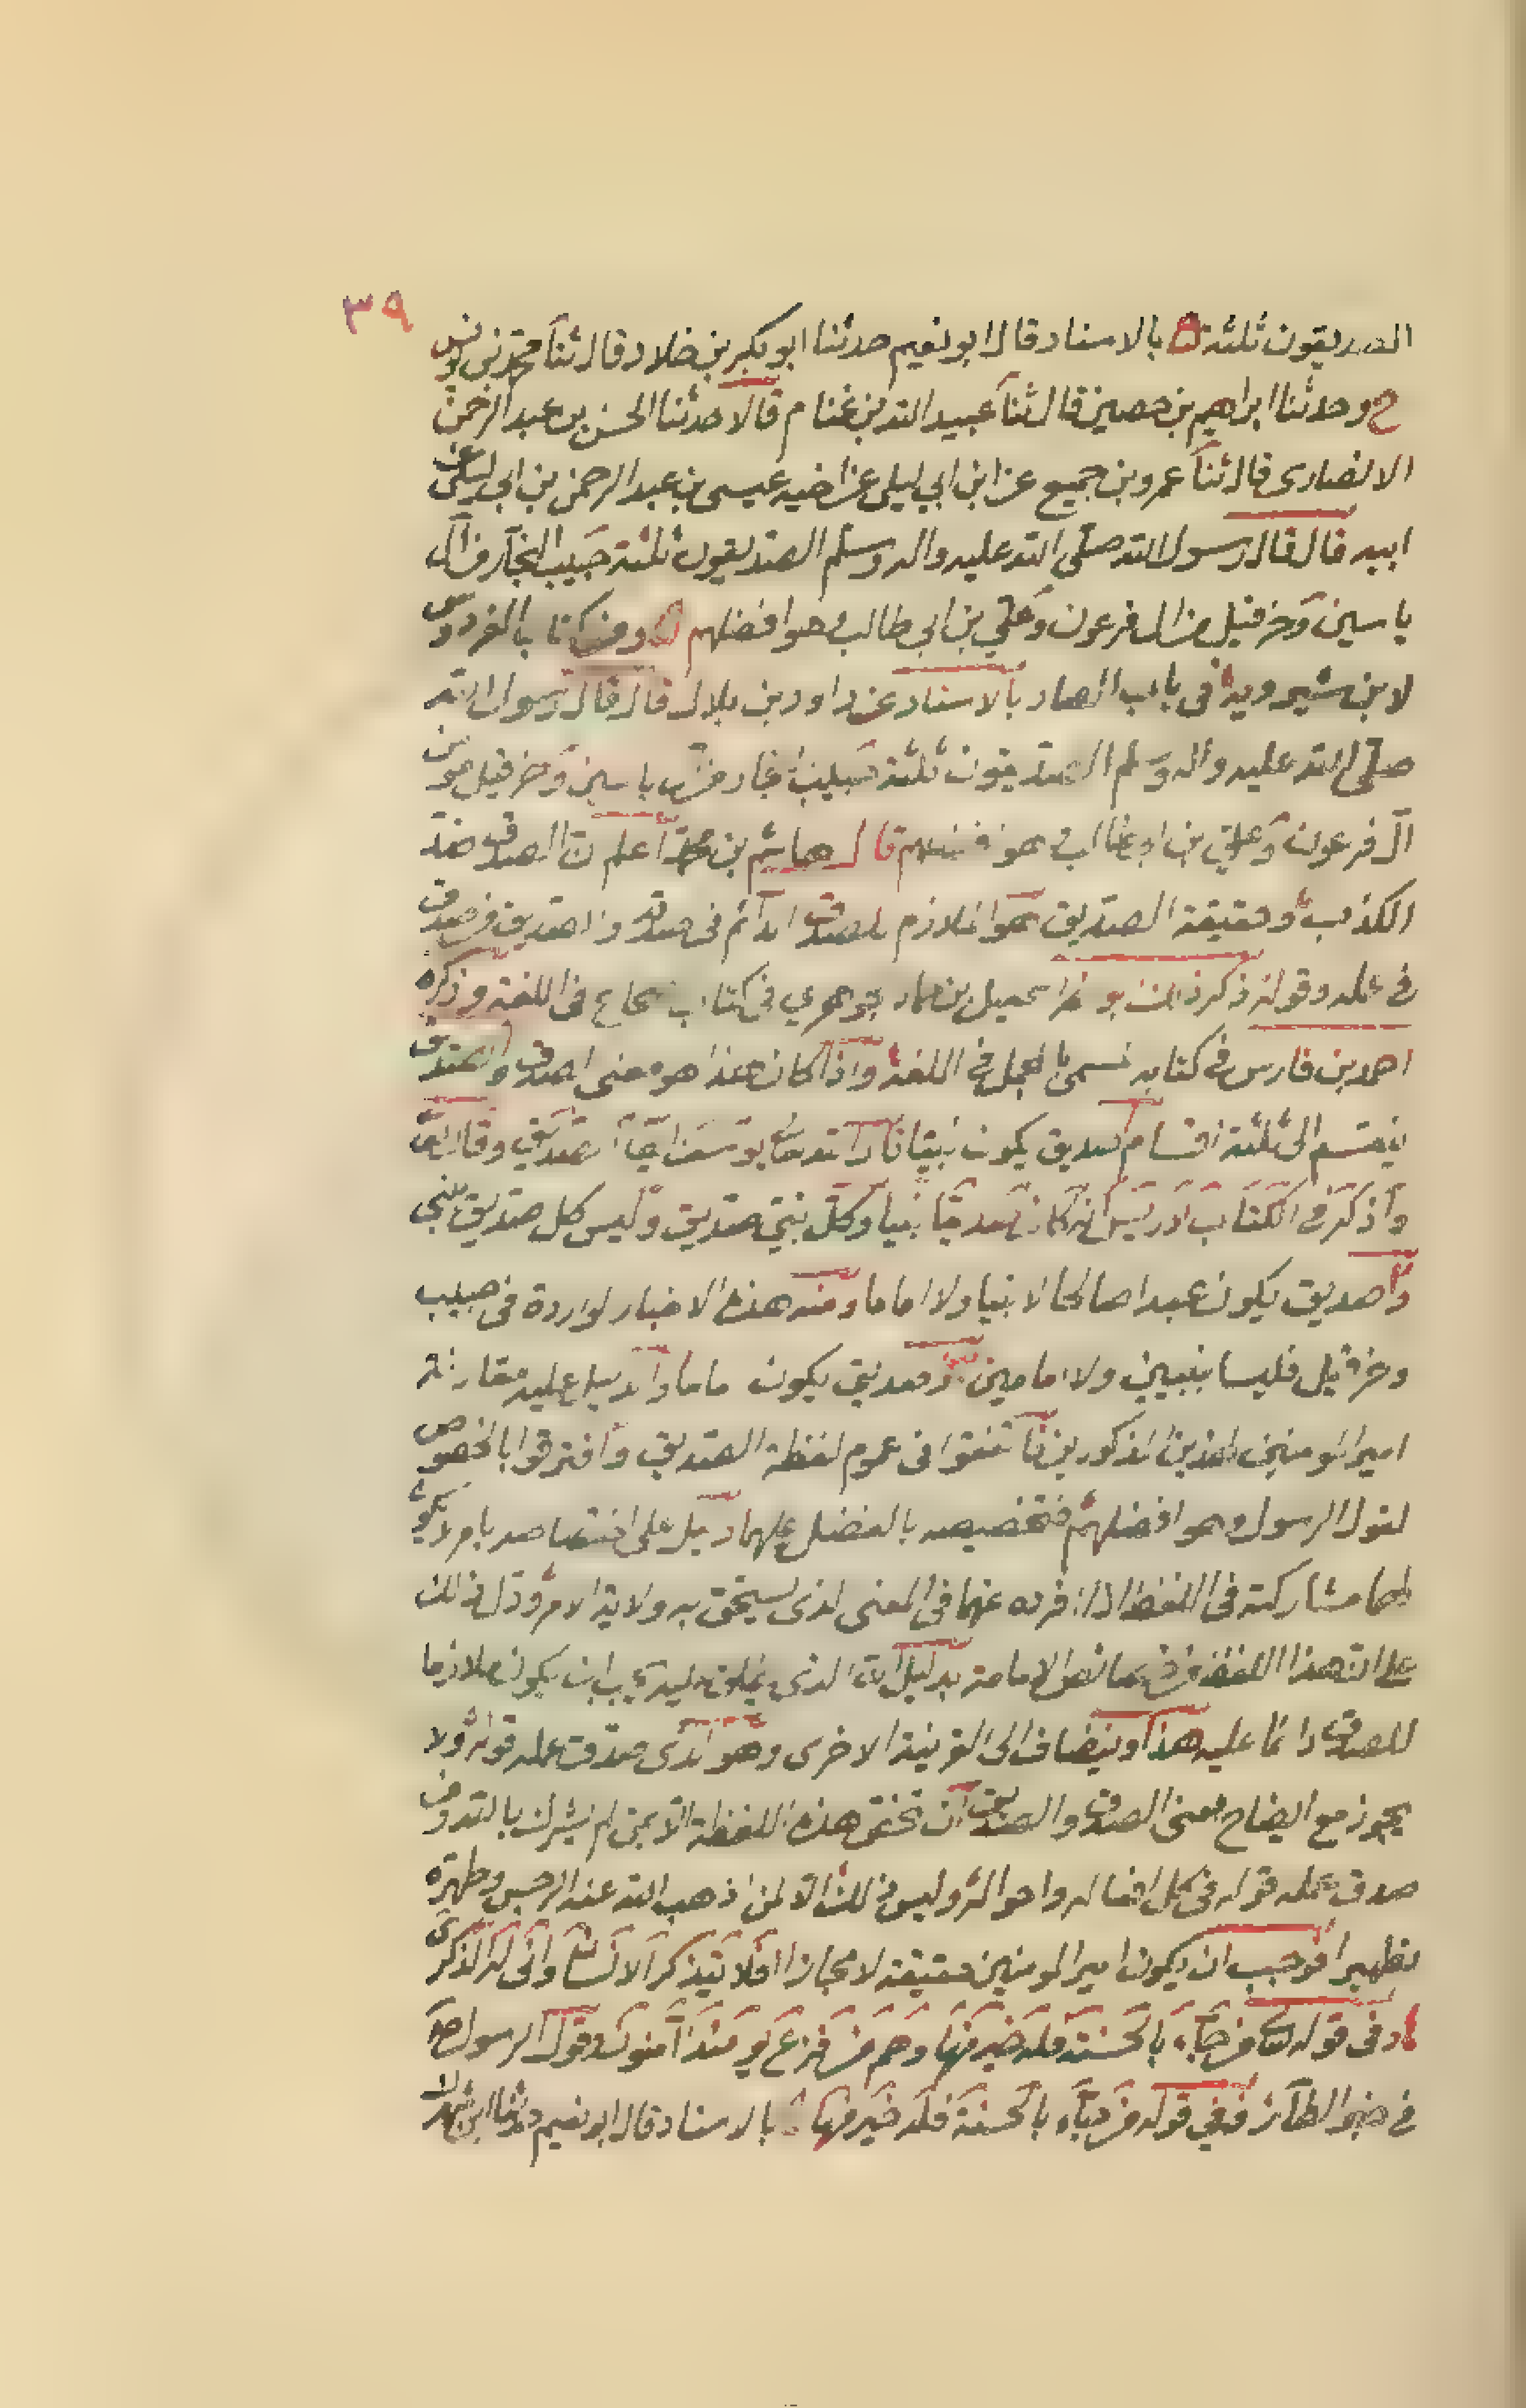 ٣٩
الصديقون ثلثة ۵ بالاسناد قال ابو نعيم حدثنا ابو بكر بن خلاد قال ثنا محمد بن يونس
ح وحدثنا ابراهيم بن حصين قال ثنا عبيد الله بن غنام قالا حدثنا الحسن بن عبد الرحمن
الانصارى قال ثنا عمرو بن جميع عن ابن ابي ليلى عن اخيه عيسى بن عبد الرحمن بن ابي ليلى عن
ابيه قال قال رسول الله صلى الله عليه واله وسلم الصديقون ثلثة حبيب النجار من آل
ياسين وحزقيل من ال فرعون وعلي بن ابي طالب وهو افضلهم ۵ ومن كتاب الفردوس
لابن شيرويه في باب الصاد بالاسناد عن داود بن بلال قال قال رسول الله
صلى الله عليه واله وسلم الصديقون ثلثة حبيب النجار من ال ياسين وحزقيل مؤمن
آل فرعون وعلي بن ابي طالب وهو افضلهم قال هاشم بن محمد اعلم ان الصدق ضد
الكذب وحقيقة الصديق هو الملازم للصدق الدائم في صدقه والصديق من صدق
في عمله وقوله ذكر ذلك ابو نصر اسمعيل بن حماد الجوهري في كتاب الصحاح في اللغة وذكره
احمد بن فارس في كتابه المسمى بالمجمل في اللغة واذا كان هذا هو معنى الصدق والصديق
ينقسم الى ثلثة اقسام صديق يكون نبيا قال الله تعالى يوسف ايها الصديق وقال تعالى
واذكر في الكتاب ادريس انه كان صديقا نبيا وكل نبي صديق وليس كل صديق بنبي
وصديق يكون عبدا صالحا لا نبيا ولا اماما ومنه هذه الاخبار الواردة في حبيب
وحزقيل فليسا بنبيين ولا امامين وصديق يكون اماما والدليل عليه مقارنة
امير المومنين لهذين المذكورين فاتفقوا في عموم لفظة الصديق وافترقوا بالخصوص
لقول الرسول وهو افضلهم فتخصيصه بالفضل عليهما دليل على اختصاصه بامر لا يكون
لهما مشاركته في اللفظ افرده عنهما في المعنى الذى يستحق به ولاية الامر ودل ذلك
على ان هذا اللفظ نص الامامة بدليل ان الذى يطلق عليه يجب ان يكون ملازما
للصدق دائما عليه هذا وينضاف الى القرينة الاخرى وهو الذى صدقت عمله قوله ولا
يجوز مع ايضاح معنى الصدق والصديق ان تختص هذه اللفظة الا بمن لم يشرك بالله ومن
صدق عمله قوله في كل افعاله واحواله وليس ذلك الا لمن اذهب الله عنه الرجس وطهره
تطهيرا فوجب ان يكون امير المومنين حقيقة لا مجازا افلا يتذكر الانسان وانى له الذكرى
في قوله تعالى من جاء بالحسنة فله خير منها وهم من فزع يومئذ امنون وقول الرسول ص
في خبر الطائر ففي قوله من جاء بالحسنة فله خير منها ۵ بالاسناد قال ابو نعيم حدثنا ابن شريك